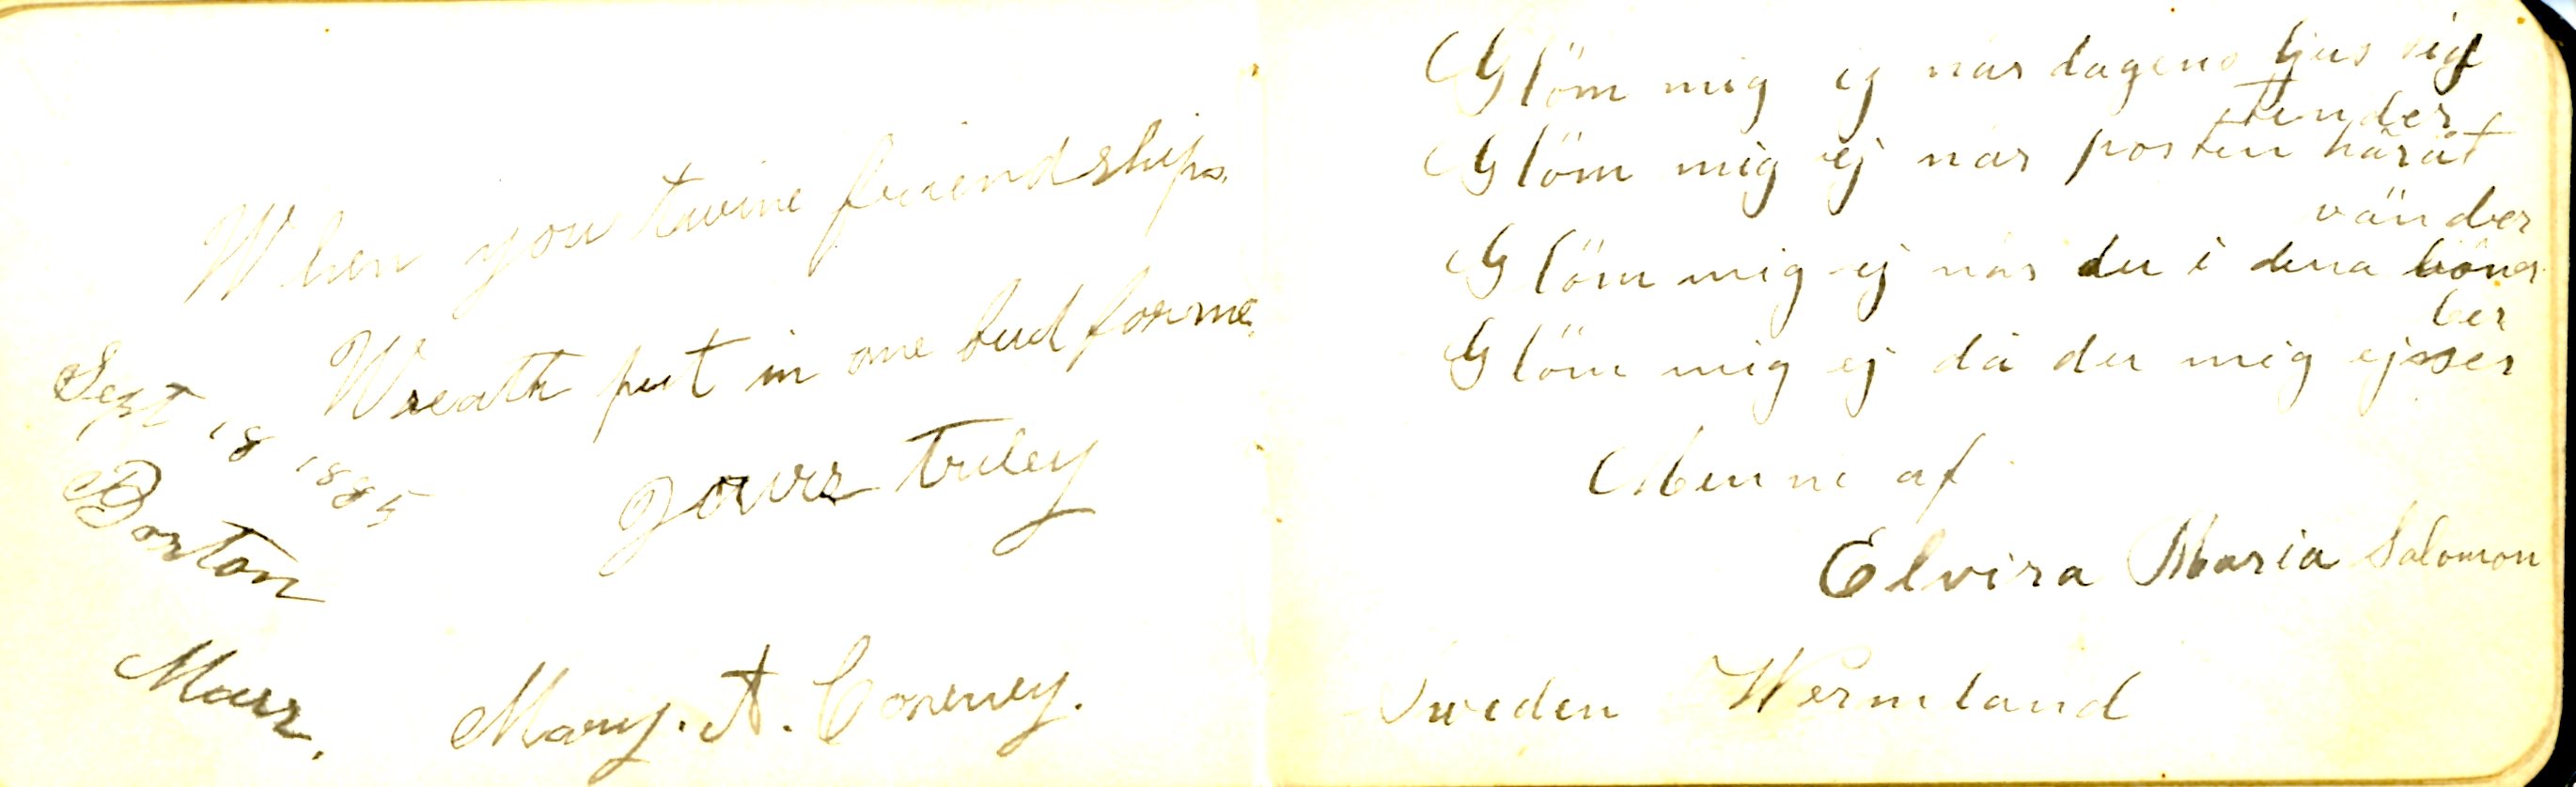 When you twine friendships
Wreath put in one bud for me.
Yours truley
Sept 18 1885
Boston
Mass.
Mary. A.
Glöm mig ej när dagens ljus sig
tender
Glöm mig ej när posten häråt
vänder
Glöm mig ej när du i dina böner
ber
Glöm mig ej då du mig ej ser
Menne af
Elvira Maria Salomon
Sweden Wermland